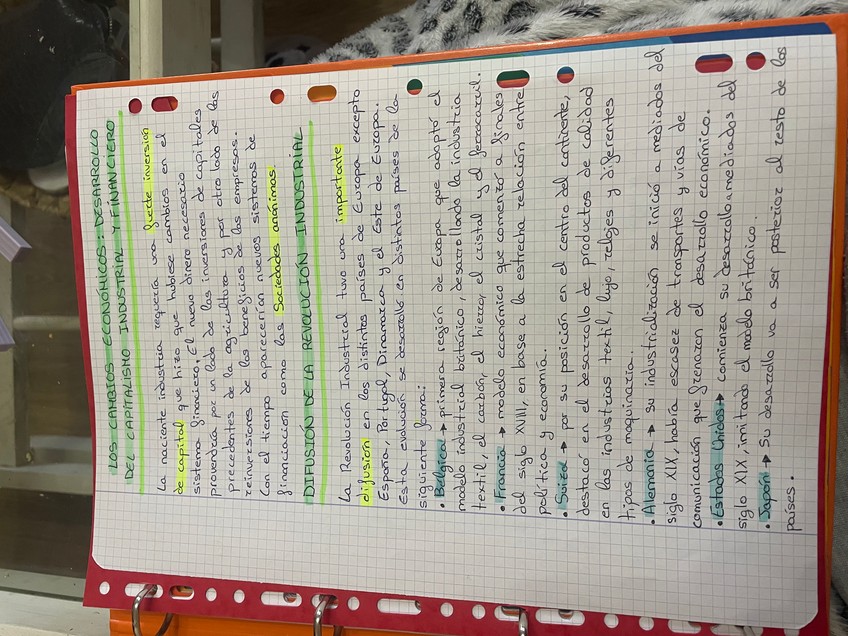 LOS CAMBIOS ECONÓMICOS: DESARROLLO
DEL CAPITALISMO INDUSTRIAL Y FINANCIERO
La naciente industria requería una fuerte inversión
de capital que hizo que hubiese cambios en el
sistema financiero. El nuevo dinero necesario
provendría por un lado de las inversiones de capitales
precedentes de la agricultura y por otro lado de las
reinversiones de los beneficios de las empresas.
Con el tiempo aparecerían nuevos sistemas de
financiación como las Sociedades anónimas.
DIFUSIÓN DE LA REVOLUCIÓN INDUSTRIAL
La Revolución Industrial tuvo una importante
difusión en los distintos países de Europa excepto
España, Portugal, Dinamarca y el Este de Europa.
Esta evolución se desarrolló en distintos países de la
siguiente forma:
• Bélgica → primera región de Europa que adoptó el
modelo industrial británico, desarrollando la industria
textil, el carbón, el hierro, el cristal y el ferrocarril.
• Francia → modelo económico que comenzó a finales
del siglo XVIII, en base a la estrecha relación entre
política y economía.
• Suiza → por su posición en el centro del continente,
destacó en el desarrollo de productos de calidad
en las industrias textil, lujo, relojes y diferentes
tipos de maquinaria.
• Alemania → su industrialización se inició a mediados del
siglo XIX, había escasez de transportes y vías de
comunicación que frenaron el desarrollo económico.
• Estados Unidos → comienza su desarrollo a mediados del
siglo XIX, imitando el modelo británico.
• Japón → Su desarrollo va a ser posterior al resto de los
países.